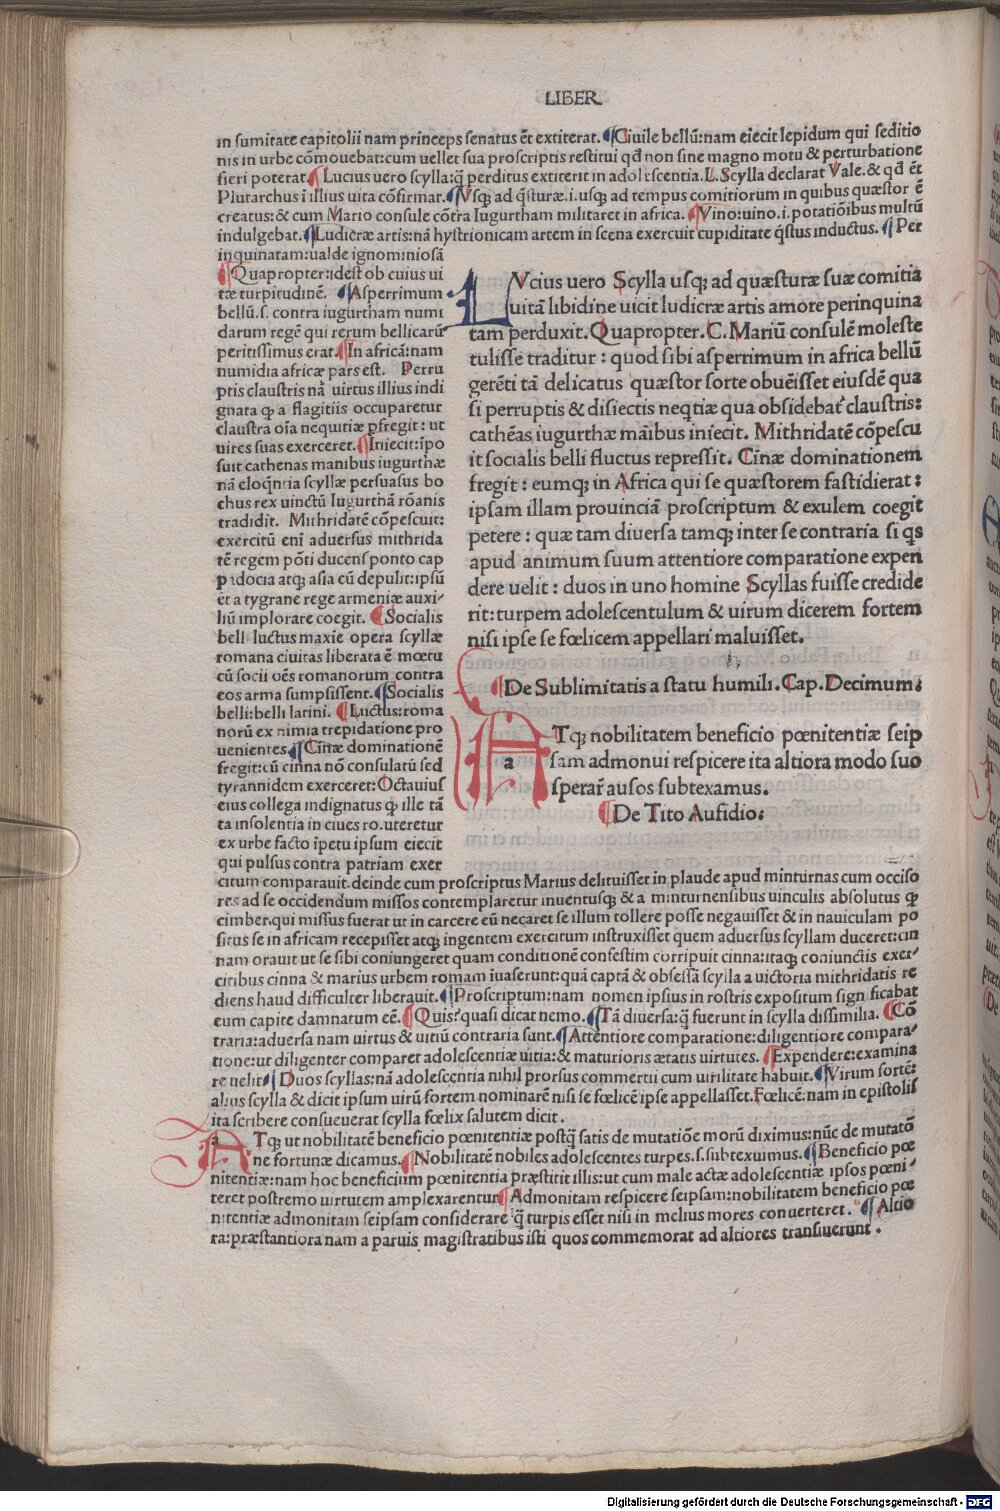 LIBER
in sumitate capitolii nam princeps senatus ēt extiterat. ¶Ciuile bellū:nam eiecit lepidum qui seditio
nis in urbe cōmouebat:cum uellet sua proscriptis restitui qđ non sine magno motu & perturbatione
fieri poterat ¶Lucius uero scylla:q̄ perditus extiterit in adolescentia.L.Scylla declarat Vale.& qđ ēt
Plutarchus ī illius uita cōfirmat. ¶Vsq; ad q̄sturæ.i.usq; ad tempus comitiorum in quibus quæstor ē
creatus:& cum Mario consule cōtra Iugurtham militaret in africa. ¶Vino:uino.i.potatiōibus multū
indulgebat. ¶Ludicræ artis:nā hystrionicam artem in scena exercuit cupiditate q̄stus inductus. ¶Per
inquinatam:ualde ignominiosā
¶Quapropter:idest ob cuius ui
tæ turpitudinē. ¶Asperrimum
bellū.s.contra iugurtham numi
darum regē qui rerum bellicarū
peritissimus erat. ¶In africā:nam
numidia africæ pars est. Perru
ptis claustris nā uirtus illius indi
gnata ꝙ a flagitiis occuparetur
claustra oīa nequitiæ pfregit:ut
uires suas exerceret. ¶Iniecit:īpo
suit cathenas manibus iugurthæ
nā eloq̄ntia scyllæ persuasus bo
chus rex uinctū Iugurthā rōanis
tradidit. Mithridatē cōpescuit:
exercitū enī aduersus mithrida
tē regem pōti ducens ponto cap
padocia atq; asia eū depulit:ipsū
et a tygrane rege armeniæ auxi-
liū implorare coegit. ¶Socialis
bell luctus maxie opera scyllæ
romana ciuitas liberata ē mœtu
cū socii oēs romanorum contra
eos arma sumpsissent. ¶Socialis
belli:belli latini. ¶Luctus:roma
norū ex nimia trepidatione pro
uenientes. ¶Cinæ dominationē
fregit:cū cinna nō consulatū sed
tyrannidem exerceret:Octauius
eius collega indignatus ꝙ ille tā
ta insolentia in ciues ro.uteretur
ex urbe facto īpetu ipsum eiecit
qui pulsus contra patriam exer
LVcius uero Scylla usq; ad quæsturæ suæ comitia
uitā libidine uicit ludicræ artis amore perinquina
tam perduxit. Quapropter. C. Mariū consulē moleste
tulisse traditur : quod sibi asperrimum in africa bellū
gerēti tā delicatus quæstor sorte obuēisset eiusdē qua
si perruptis & disiectis neq̄tiæ qua obsidebat̄ claustris:
cathēas iugurthæ māibus iniecit. Mithridatē cōpescu
it socialis belli fluctus repressit. Cinæ dominationem
fregit : eumq; in Africa qui se quæstorem fastidierat :
ipsam illam prouinciā proscriptum & exulem coegit
petere : quæ tam diuersa tamq; inter se contraria si q̄s
apud animum suum attentiore comparatione expen
dere uelit : duos in uno homine Scyllas fuisse credide
rit:turpem adolescentulum & uirum dicerem fortem
nisi ipse se fœlicem appellari maluisset.
¶De Sublimitatis a statu humili. Cap. Decimum:
ATq; nobilitatem beneficio pœnitentiæ seip
a sam admonui respicere ita altiora modo suo
sperar̄ ausos subtexamus.
¶De Tito Aufidio:
citum comparauit.deinde cum proscriptus Marius delituisset in plaude apud minturnas cum occiso
res ad se occidendum missos contemplaretur inuentusq; & a minturnensibus uinculis absolutus ꝙ
cimber.qui missus fuerat ut in carcere eū necaret se illum tollere posse negauisset & in nauiculam po
situs se in africam recepisset atq; ingentem exercitum instruxisset quem aduersus scyllam duceret:cin
nam orauit ut se sibi coniungeret quam conditionē confestim corripuit cinna:itaq; coniunctis exer-
citibus cinna & marius urbem romam iuaserunt:quā captā & obsessā scylla a uictoria mithridatis re
diens haud difficulter liberauit. ¶Proscriptum:nam nomen ipsius in rostris expositum significabat
eum capite damnatum eē. ¶Quis?quasi dicat nemo. ¶Tā diuersa:q̄ fuerunt in scylla dissimilia. ¶Cō
traria:aduersa nam uirtus & uitiū contraria sunt. ¶Attentiore comparatione:diligentiore compara-
tione:ut diligenter comparet adolescentiæ uitia:& maturioris ætatis uirtutes. ¶Expendere:examina
re uelit ¶Duos scyllas:nā adolescentia nihil prorsus commertii cum uirilitate habuit. ¶Virum fortē:
alius scylla & dicit ipsum uirū fortem nominarē nisi se fœlicē ipse appellasset.Fœlicē:nam in epistolis
ita scribere consueuerat scylla fœlix salutem dicit.
ATq; ut nobilitatē beneficio pœnitentiæ postq̄ satis de mutatiōe morū diximus:nūc de mutatō
ne fortunæ dicamus. ¶Nobilitatē nobiles adolescentes turpes.s.subtexuimus. ¶Beneficio pœ
nitentiæ:nam hoc beneficium pœnitentia præstitit illis:ut cum male actæ adolescentiæ ipsos pœni-
teret postremo uirtutem amplexarentur ¶Admonitam respicere seipsam:nobilitatem beneficio pœ
nitentiæ admonitam seipsam considerare q̄ turpis esset nisi in melius mores conuerteret. ¶Altio
ra:præstantiora nam a paruis magistratibus isti quos commemorat ad altiores transiuerunt.
Digitalisierung gefördert durch die Deutsche Forschungsgemeinschaft - DFG